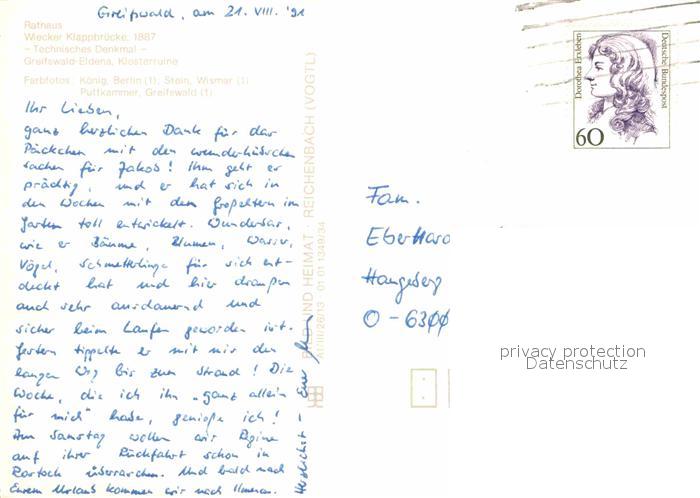 Greifswald, am 21. VIII. '91
Rathaus
Wiecker Klappbrücke, 1887
– Technisches Denkmal –
Greifswald-Eldena, Klosterruine
Farbfotos: König, Berlin (1), Stein, Wismar (1)
Puttkammer, Greifswald (1)
Ihr Lieben,
ganz herzlichen Dank für das
Päckchen mit den wunderhübschen
sachen für Jakob! Ihm geht es
prächtig, und er hat sich in
den Wochen mit den Großeltern im
Garten toll entwickelt. Wunderbar,
wie er Bäume, Blumen, Wasser,
Vögel, Schmetterlinge für sich ent-
deckt hat und hier draußen
auch sehr ausdauernd und
sicher beim Laufen geworden ist.
Gestern tippelte er mit mir den
langen Weg bis zum Strand! Die
Woche, die ich ihn "ganz allein
für mich" habe, genieße ich!
Am Samstag wollen wir Regine
auf ihrer Rückfahrt schon in
Rostock überraschen. Und bald nach
Eurem Urlaub kommen wir nach Ilmenau.
Herzlichst – Eure
BILD UND HEIMAT REICHENBACH (VOGTL)
A1/III/26/13 01 01 1349/34
Dorothea Erxleben
Deutsche Bundespost
60
Fam.
Eberhard
Hangeberg
O - 6300
privacy protection
Datenschutz